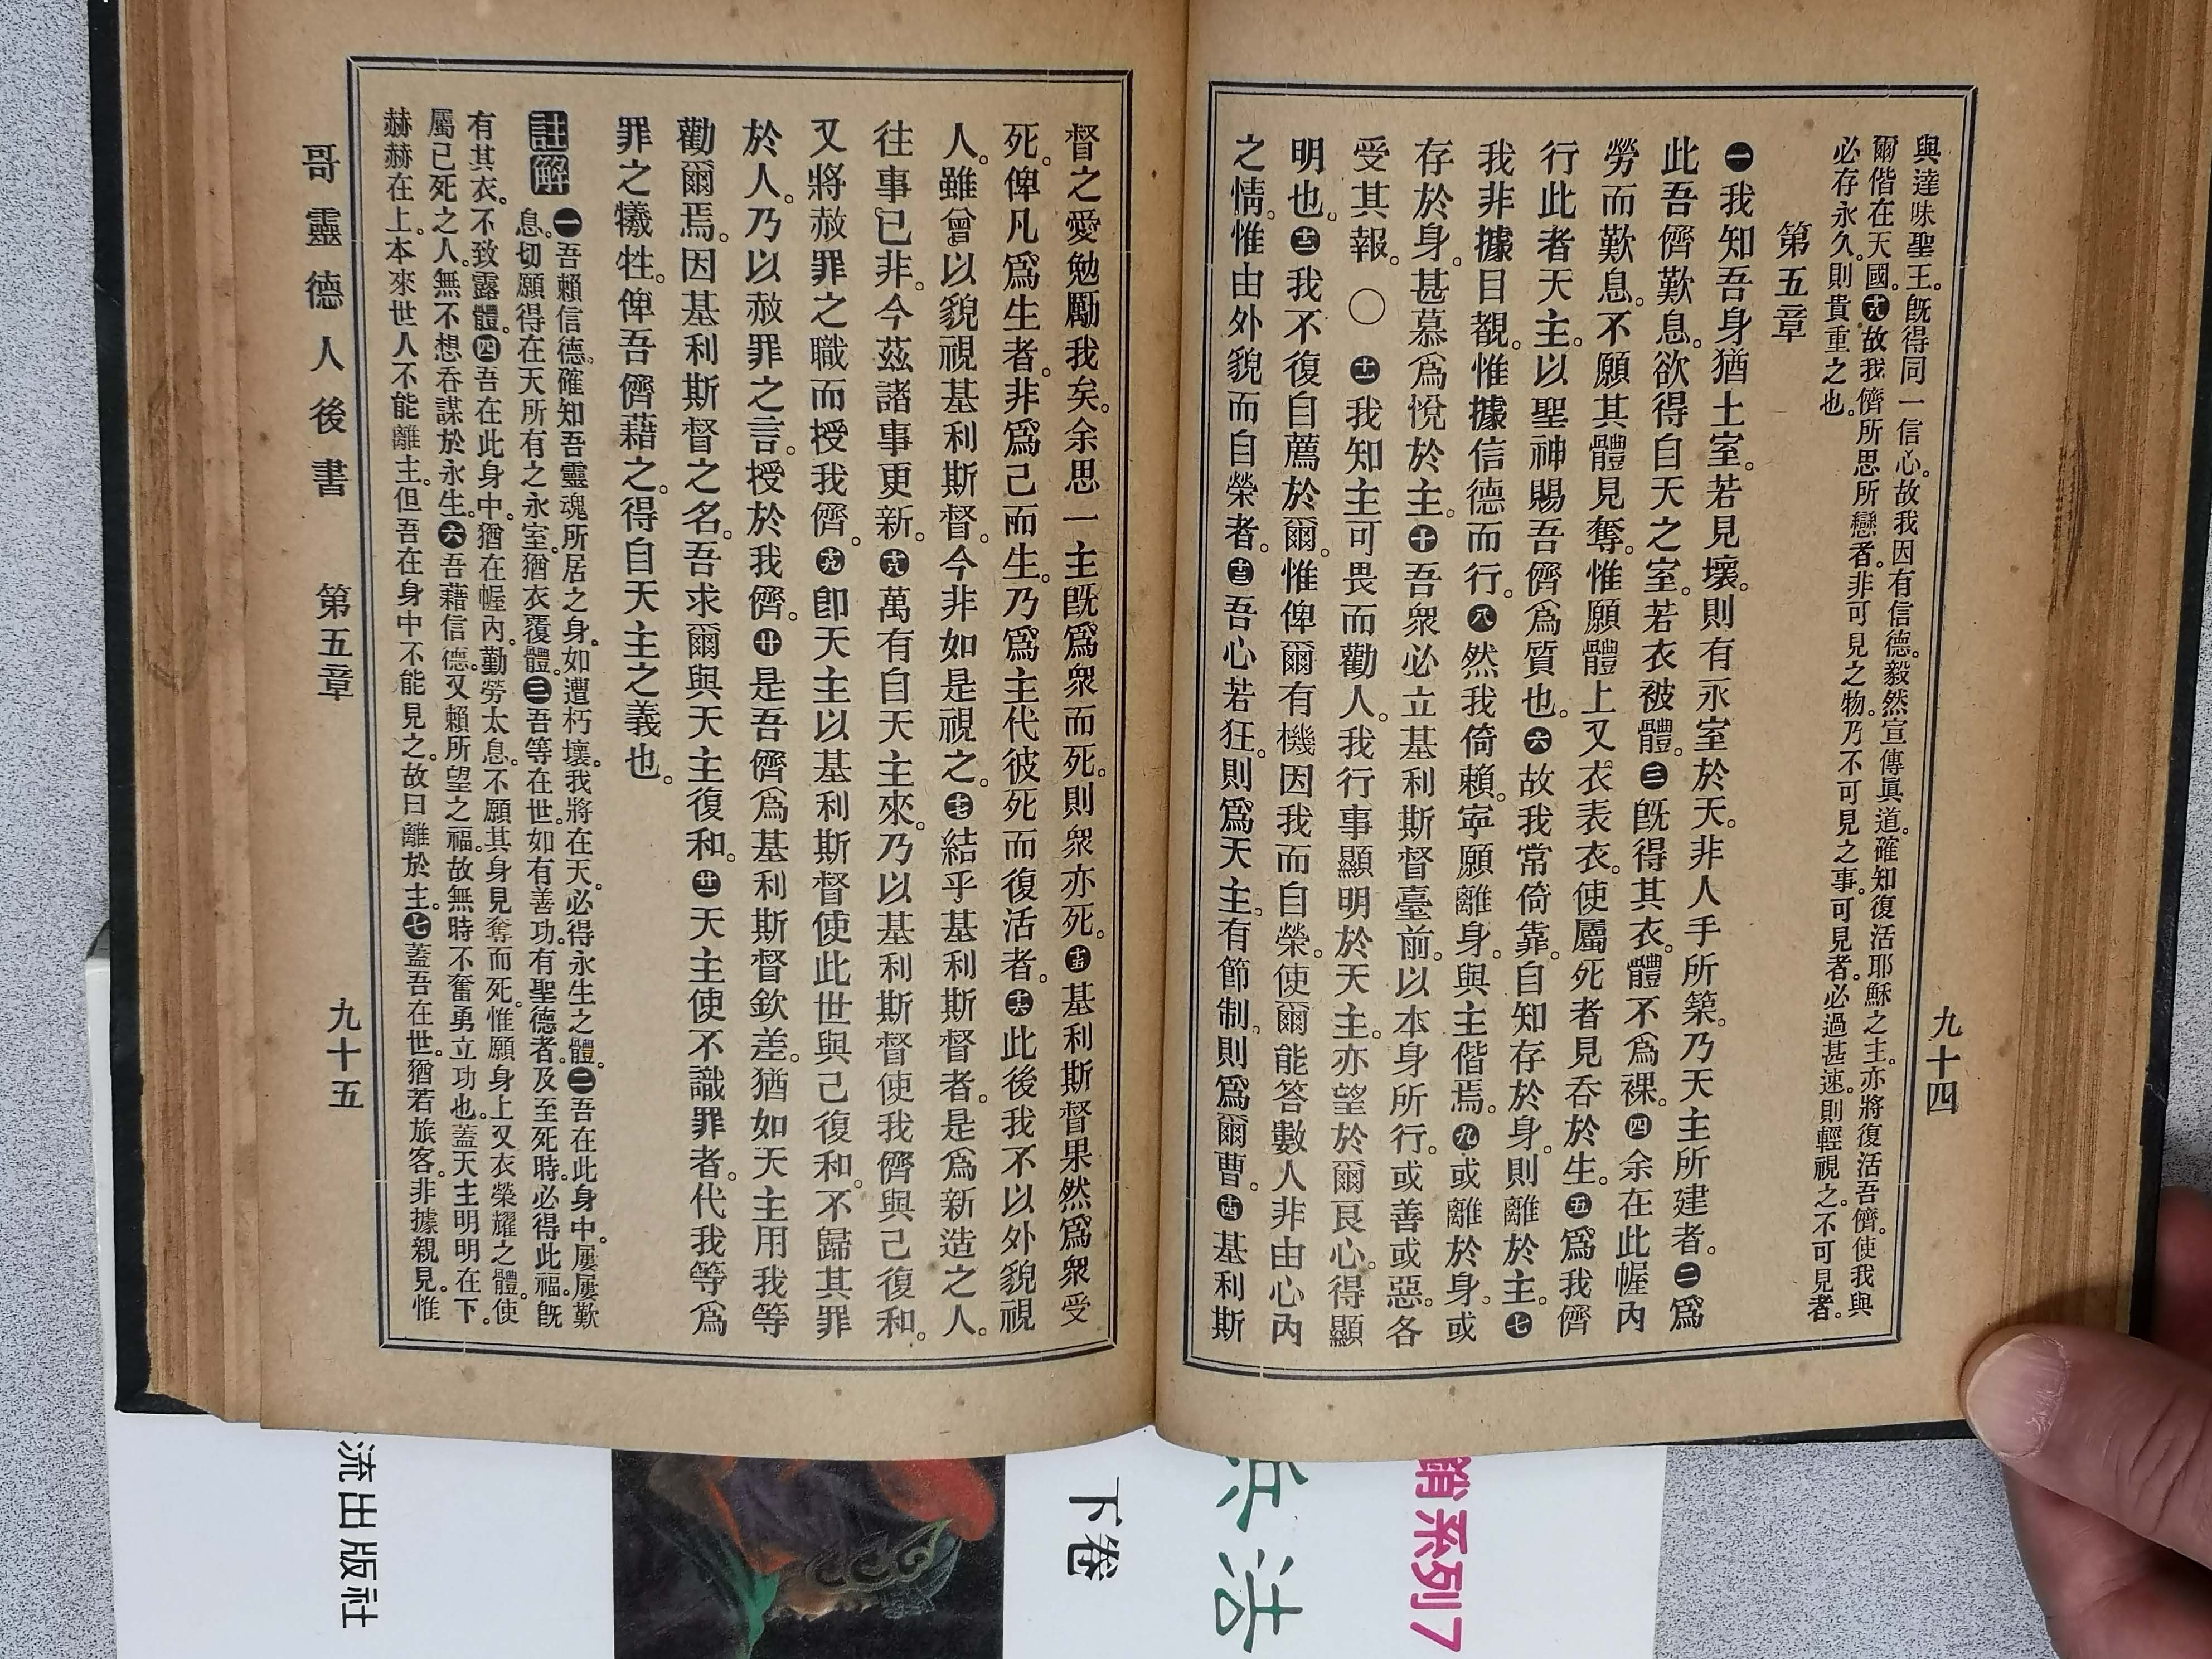 九十四
與達味聖王。既得同一信心。故我因有信德。毅然宣傳眞道。確知復活耶穌之主。亦將復活吾儕。使我與
爾偕在天國。十八故我儕所思所戀者。非可見之物。乃不可見之事。可見者。必過甚速。則輕視之。不可見者。
必存永久。則貴重之也。
第五章
一我知吾身猶土室。若見壞。則有永室於天。非人手所築。乃天主所建者。二爲
此吾儕歎息。欲得自天之室。若衣被體。三旣得其衣。體不爲裸。四余在此幄內
勞而歎息。不願其體見奪。惟願體上又衣表衣。使屬死者見吞於生。五爲我儕
行此者天主。以聖神賜吾儕爲質也。六故我常倚靠。自知存於身。則離於主。七
我非據目覩。惟據信德而行。八然我倚賴。寧願離身。與主偕焉。九或離於身。或
存於身。甚慕爲悅於主。十吾衆必立基利斯督臺前。以本身所行。或善或惡。各
受其報。〇十一我知主可畏而勸人。我行事顯明於天主。亦望於爾良心。得顯
明也。十二我不復自薦於爾。惟俾爾有機因我而自榮。使爾能答數人非由心內
之情。惟由外貌而自榮者。十三吾心若狂。則爲天主。有節制。則爲爾曹。十四基利斯
督之愛勉勵我矣。余思一主旣爲衆而死。則衆亦死。十五基利斯督果然爲衆受
死。俾凡爲生者。非爲己而生。乃爲主代彼死而復活者。十六此後我不以外貌視
人。雖曾以貌視基利斯督。今非如是視之。十七結乎基利斯督者。是爲新造之人。
往事已非。今茲諸事更新。十八萬有自天主來。乃以基利斯督使我儕與己復和。
又將赦罪之職而授我儕。十九卽天主以基利斯督使此世與己復和。不歸其罪
於人。乃以赦罪之言。授於我儕。廿是吾儕爲基利斯督欽差。猶如天主用我等
勸爾焉。因基利斯督之名。吾求爾與天主復和。廿一天主使不識罪者。代我等爲
罪之犧牲。俾吾儕藉之。得自天主之義也。
註解 一吾賴信德。確知吾靈魂所居之身。如遭朽壞。我將在天。必得永生之體。二吾在此身中。屢屢歎
息。切願得在天所有之永室。猶衣覆體。三吾等在世。如有善功。有聖德者。及至死時。必得此福。旣
有其衣。不致露體。四吾在此身中。猶在幄內。勤勞太息。不願其身見奪而死。惟願身上又衣榮耀之體。使
屬己死之人。無不想吞謀於永生。六吾藉信德。又賴所望之福。故無時不奮勇立功也。蓋天主明明在下。
赫赫在上。本來世人不能離主。但吾在身中不能見之。故曰離於主。七蓋吾在世。猶若旅客。非據親見。惟
哥靈德人後書 第五章 九十五
流出版社
下卷
兵法
系列7